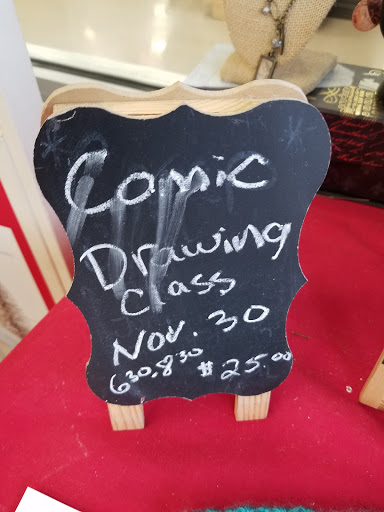 Comic
Drawing
Class
Nov. 30
630.830 $25.00